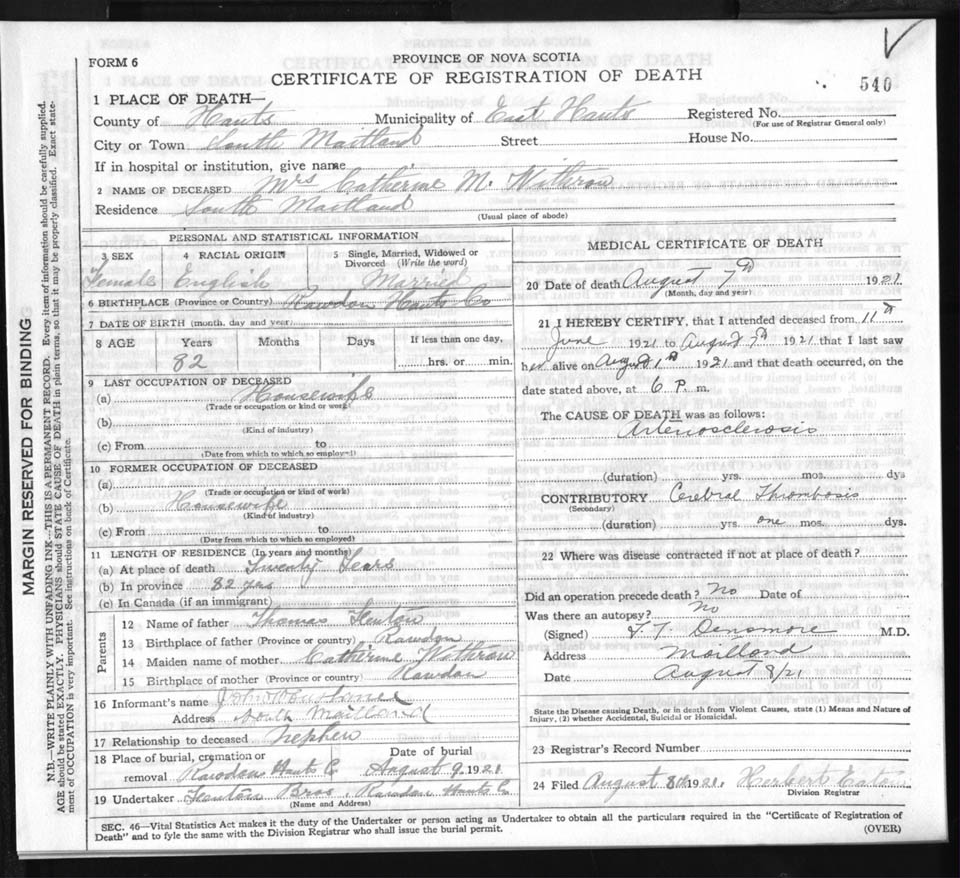 FORM 6
PROVINCE OF NOVA SCOTIA
CERTIFICATE OF REGISTRATION OF DEATH
540
1 PLACE OF DEATH—
County of Hants Municipality of East Hants Registered No.
(For use of Registrar General only)
City or Town South Maitland Street House No.
If in hospital or institution, give name
2 NAME OF DECEASED Mrs Catherine M. Withrow
Residence South Maitland
(Usual place of abode)
PERSONAL AND STATISTICAL INFORMATION
3 SEX 4 RACIAL ORIGIN 5 Single, Married, Widowed or Divorced (Write the word)
Female English Married
6 BIRTHPLACE (Province or Country) Rawdon Hants Co
7 DATE OF BIRTH (month, day and year)
8 AGE Years Months Days If less than one day,
82 hrs. or min.
9 LAST OCCUPATION OF DECEASED
(a) Housewife
(Trade or occupation or kind of work)
(b)
(Kind of industry)
(c) From to
(Date from which to which so employed)
10 FORMER OCCUPATION OF DECEASED
(a)
(Trade or occupation or kind of work)
(b) Housewife
(Kind of industry)
(c) From to
(Date from which to which so employed)
11 LENGTH OF RESIDENCE (In years and months)
(a) At place of death Twenty Years
(b) In province 82 yrs
(c) In Canada (if an immigrant)
Parents
12 Name of father Thomas Fenton
13 Birthplace of father (Province or country) Rawdon
14 Maiden name of mother Catherine Withrow
15 Birthplace of mother (Province or country) Rawdon
16 Informant's name
Address South Maitland
17 Relationship to deceased Nephew
18 Place of burial, cremation or removal Rawdon Hants Co Date of burial August 9 1921
19 Undertaker Fenton Bros. Rawdon Hants Co
(Name and Address)
MEDICAL CERTIFICATE OF DEATH
20 Date of death August 7th 1921
(Month, day and year)
21 I HEREBY CERTIFY, that I attended deceased from 11th
June 1921 to August 7th 1921 that I last saw
her alive on August 1st 1921 and that death occurred, on the
date stated above, at 6 P. m.
The CAUSE OF DEATH was as follows:
Arteriosclerosis
(duration) yrs. mos. dys
CONTRIBUTORY Cerebral Thrombosis
(Secondary)
(duration) yrs. one mos. dys.
22 Where was disease contracted if not at place of death?
Did an operation precede death? No Date of
Was there an autopsy? No
(Signed) Densmore M.D.
Address Maitland
Date August 8/21
State the Disease causing Death, or in death from Violent Causes, state (1) Means and Nature of
Injury, (2) whether Accidental, Suicidal or Homicidal.
23 Registrar's Record Number
24 Filed August 8th 1921. Herbert Eaton
Division Registrar
SEC. 46—Vital Statistics Act makes it the duty of the Undertaker or person acting as Undertaker to obtain all the particulars required in the "Certificate of Registration of
Death" and to fyle the same with the Division Registrar who shall issue the burial permit.
(OVER)
MARGIN RESERVED FOR BINDING
N.B.—WRITE PLAINLY WITH UNFADING INK—THIS IS A PERMANENT RECORD. Every item of information should be carefully supplied.
AGE should be stated EXACTLY. PHYSICIANS should STATE CAUSE OF DEATH in plain terms, so that it may be properly classified. Exact state-
ment of OCCUPATION is very important. See instructions on back of Certificate.